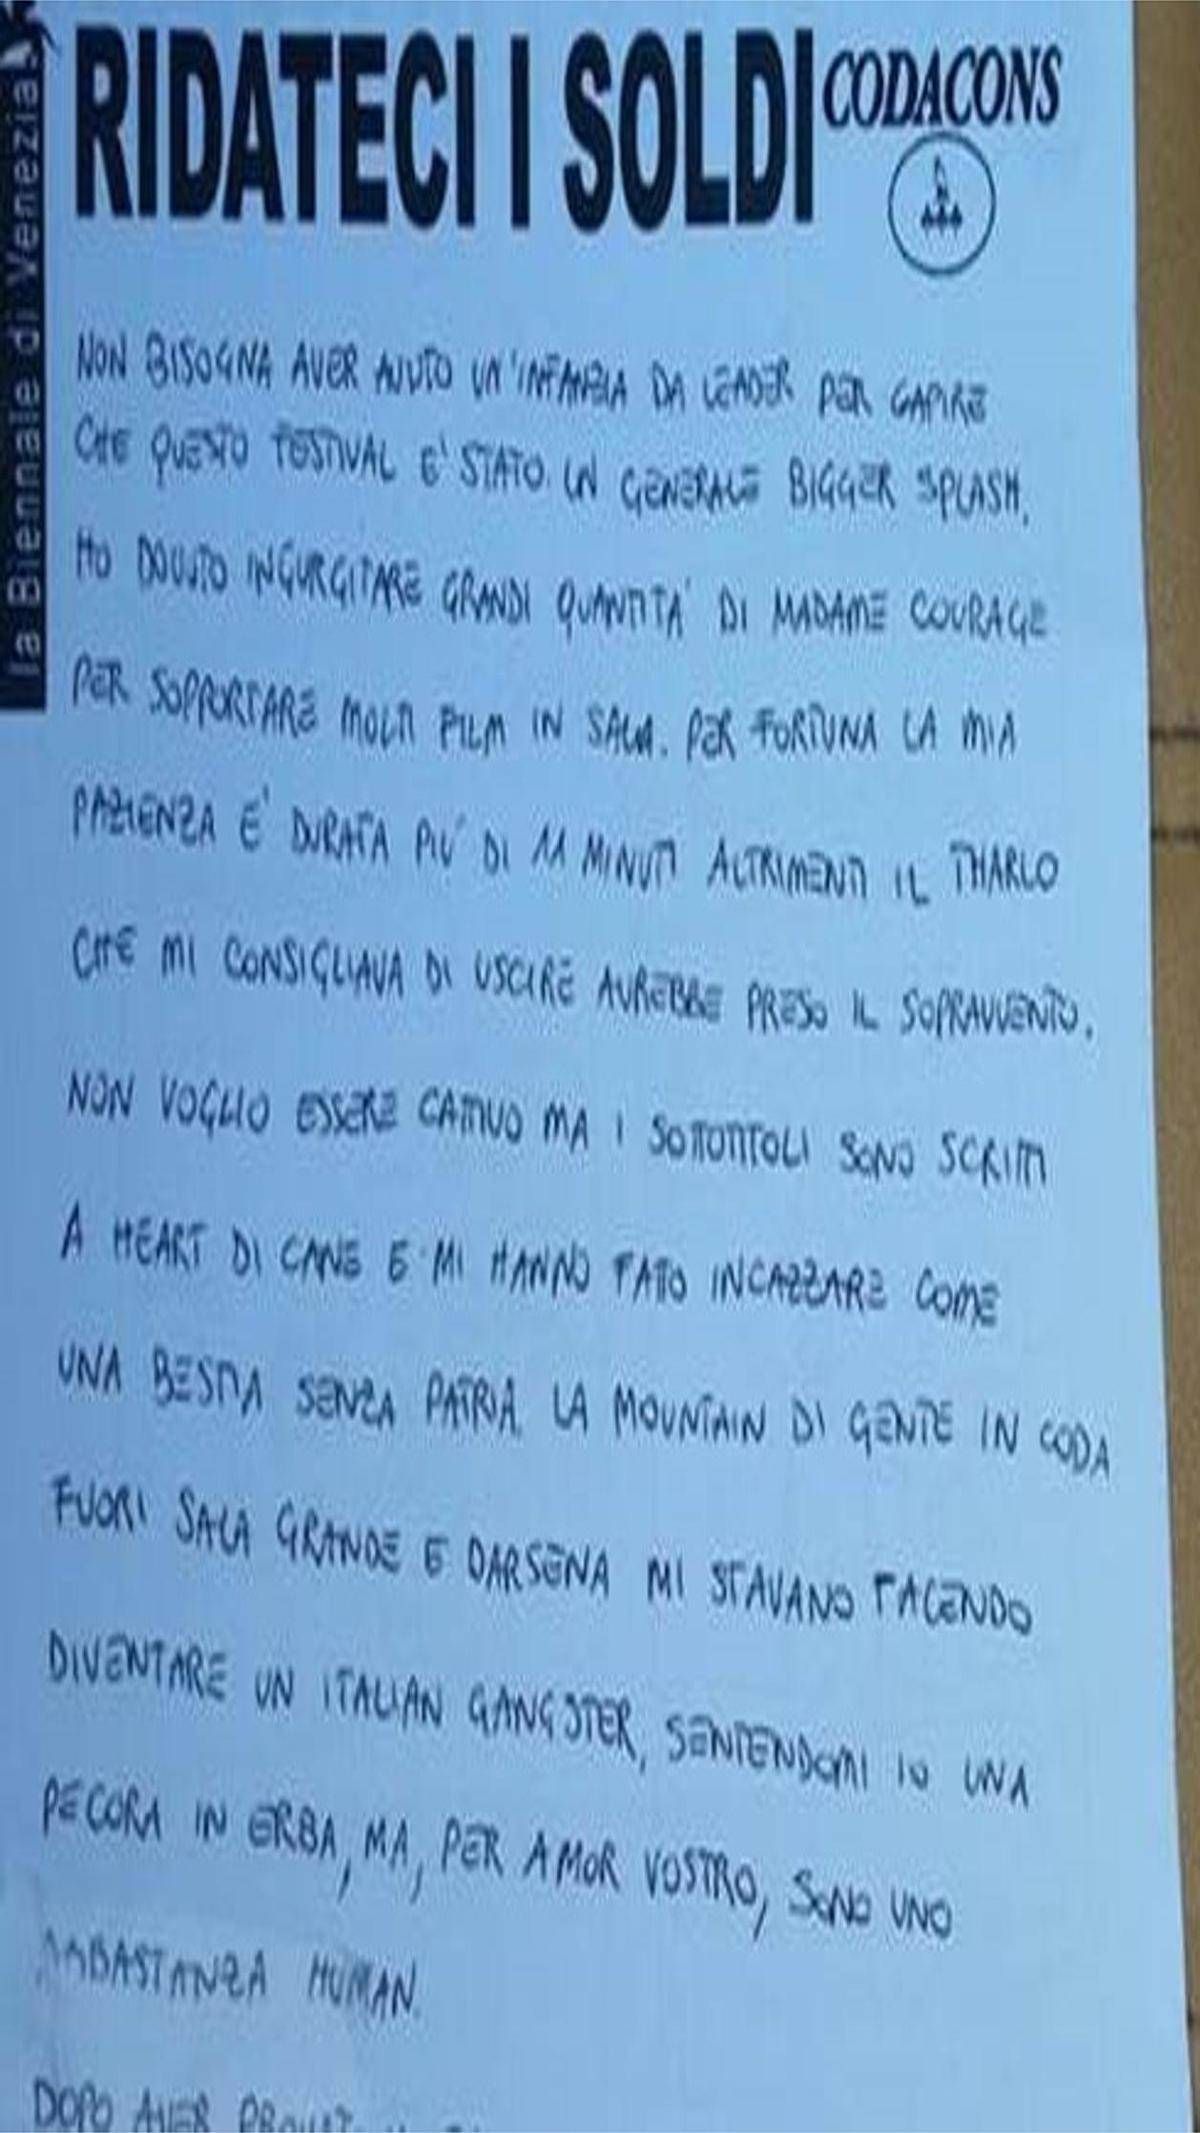 la Biennale di Venezia
RIDATECI I SOLDI CODACONS
NON BISOGNA AVER AVUTO UN'INFANZIA DA LEADER PER CAPIRE
CHE QUESTO FESTIVAL E' STATO IN GENERALE BIGGER SPLASH.
HO DOVUTO INGURGITARE GRANDI QUANTITA' DI MADAME COURAGE
PER SOPPORTARE MOLTI FILM IN SALA. PER FORTUNA LA MIA
PAZIENZA E' DURATA PIU' DI 11 MINUTI ALTRIMENTI IL THARLO
CHE MI CONSIGLIAVA DI USCIRE AVREBBE PRESO IL SOPRAVVENTO.
NON VOGLIO ESSERE CATTIVO MA I SOTTOTITOLI SONO SCRITTI
A HEART DI CANE E MI HANNO FATTO INCAZZARE COME
UNA BESTIA SENZA PATRIA. LA MOUNTAIN DI GENTE IN CODA
FUORI SALA GRANDE E DARSENA MI STAVANO FACENDO
DIVENTARE UN ITALIAN GANGSTER, SENTENDOMI IO UNA
PECORA IN ERBA, MA, PER AMOR VOSTRO, SONO UNO
ABBASTANZA HUMAN.
DOPO AVER